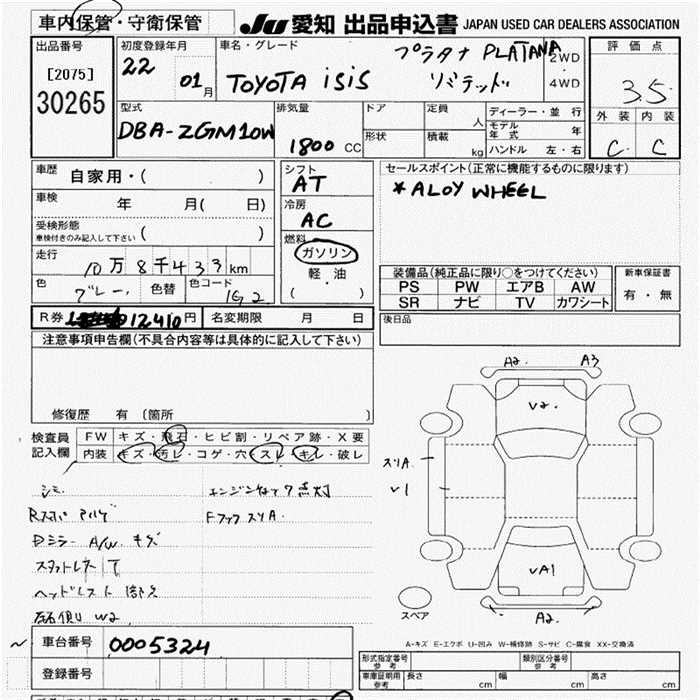 車内保管・守衛保管
JU 愛知 出品申込書 JAPAN USED CAR DEALERS ASSOCIATION
出品番号
[2075]
30265
初度登録年月
22 01月
車名・グレード
TOYOTA iSiS
プラタナ PLATANA
リミテッド
2WD
・
4WD
評価点
3.5
外装 内装
C C
型式
DBA-ZGM10W
排気量
1800 CC
ドア
定員
人
形状
積載
kg
ディーラー・並行
モデル年式 年
ハンドル 左・右
車歴
自家用・( )
車検
年 月( 日)
受検形態
車検付きのみ記入して下さい ( )
走行
10万8千433km
色
グレー
色替
色コード
1G2
シフト
AT
冷房
AC
燃料
ガソリン
軽・油
( )
セールスポイント(正常に機能するものに限ります)
*ALOY WHEEL
装備品(純正品に限り○をつけてください)
PS PW エアB AW
SR ナビ TV カワシート
新車保証書
有・無
R券 12410円
名変期限 月 日
後日品
注意事項申告欄(不具合内容等は具体的に記入して下さい)
修復歴 有 〔箇所 〕
検査員
記入欄
FW キズ・飛石・ヒビ割・リペア跡・X要
内装 キズ・汚レ・コゲ・穴・スレ・キレ・破レ
シミ
エンジンチェック点灯
Dミラー A/W キズ
ヘッドレスト
W2
A2 A3
V2
スリA
V1
VA1
A2
スペア
A-キズ E-エクボ U-凹み W-補修跡 S-サビ C-腐食 XX-交換済
車台番号
0005324
登録番号
形式指定番号
参考
類別区分番号
参考
車庫証明用
参考
長さ cm 幅 cm 高さ cm